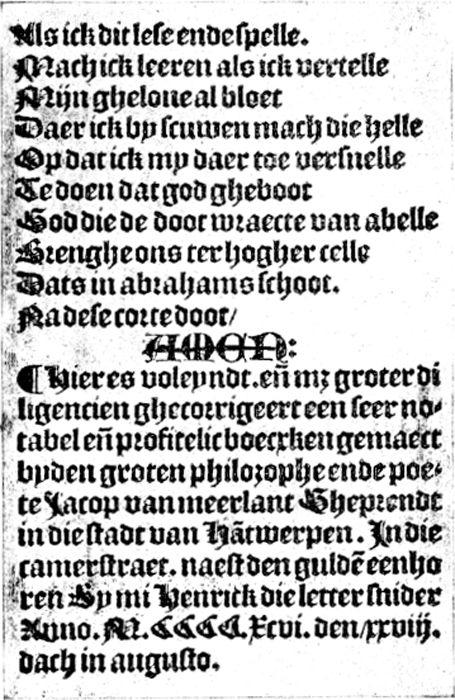 Als ick dit lese ende spelle.
Mach ick leeren als ick vertelle
Mijn ghelove al bloet
Daer ick by scuwen mach die helle
Op dat ick my daer toe versnelle
Te doen dat god gheboot
God die de doot wraecte van abelle
Brenghe ons ter hogher celle
Dats in abrahams schoot.
Na dese corte doot/
AMEN:
¶ Hier es voleyndt. eñ mz groter di
ligencien ghecorrigeert een seer no-
tabel eñ profitelic boecxken gemaect
byden groten philozophe ende poe-
te Jacop van meerlant Gheprendt
in die stadt van Hātwerpen. In die
camerstraet. naest den guldē eenho
ren By mi Henrick die letter snider
Anno. M. CCCC. xcvi. den/xxviij.
dach in augusto.